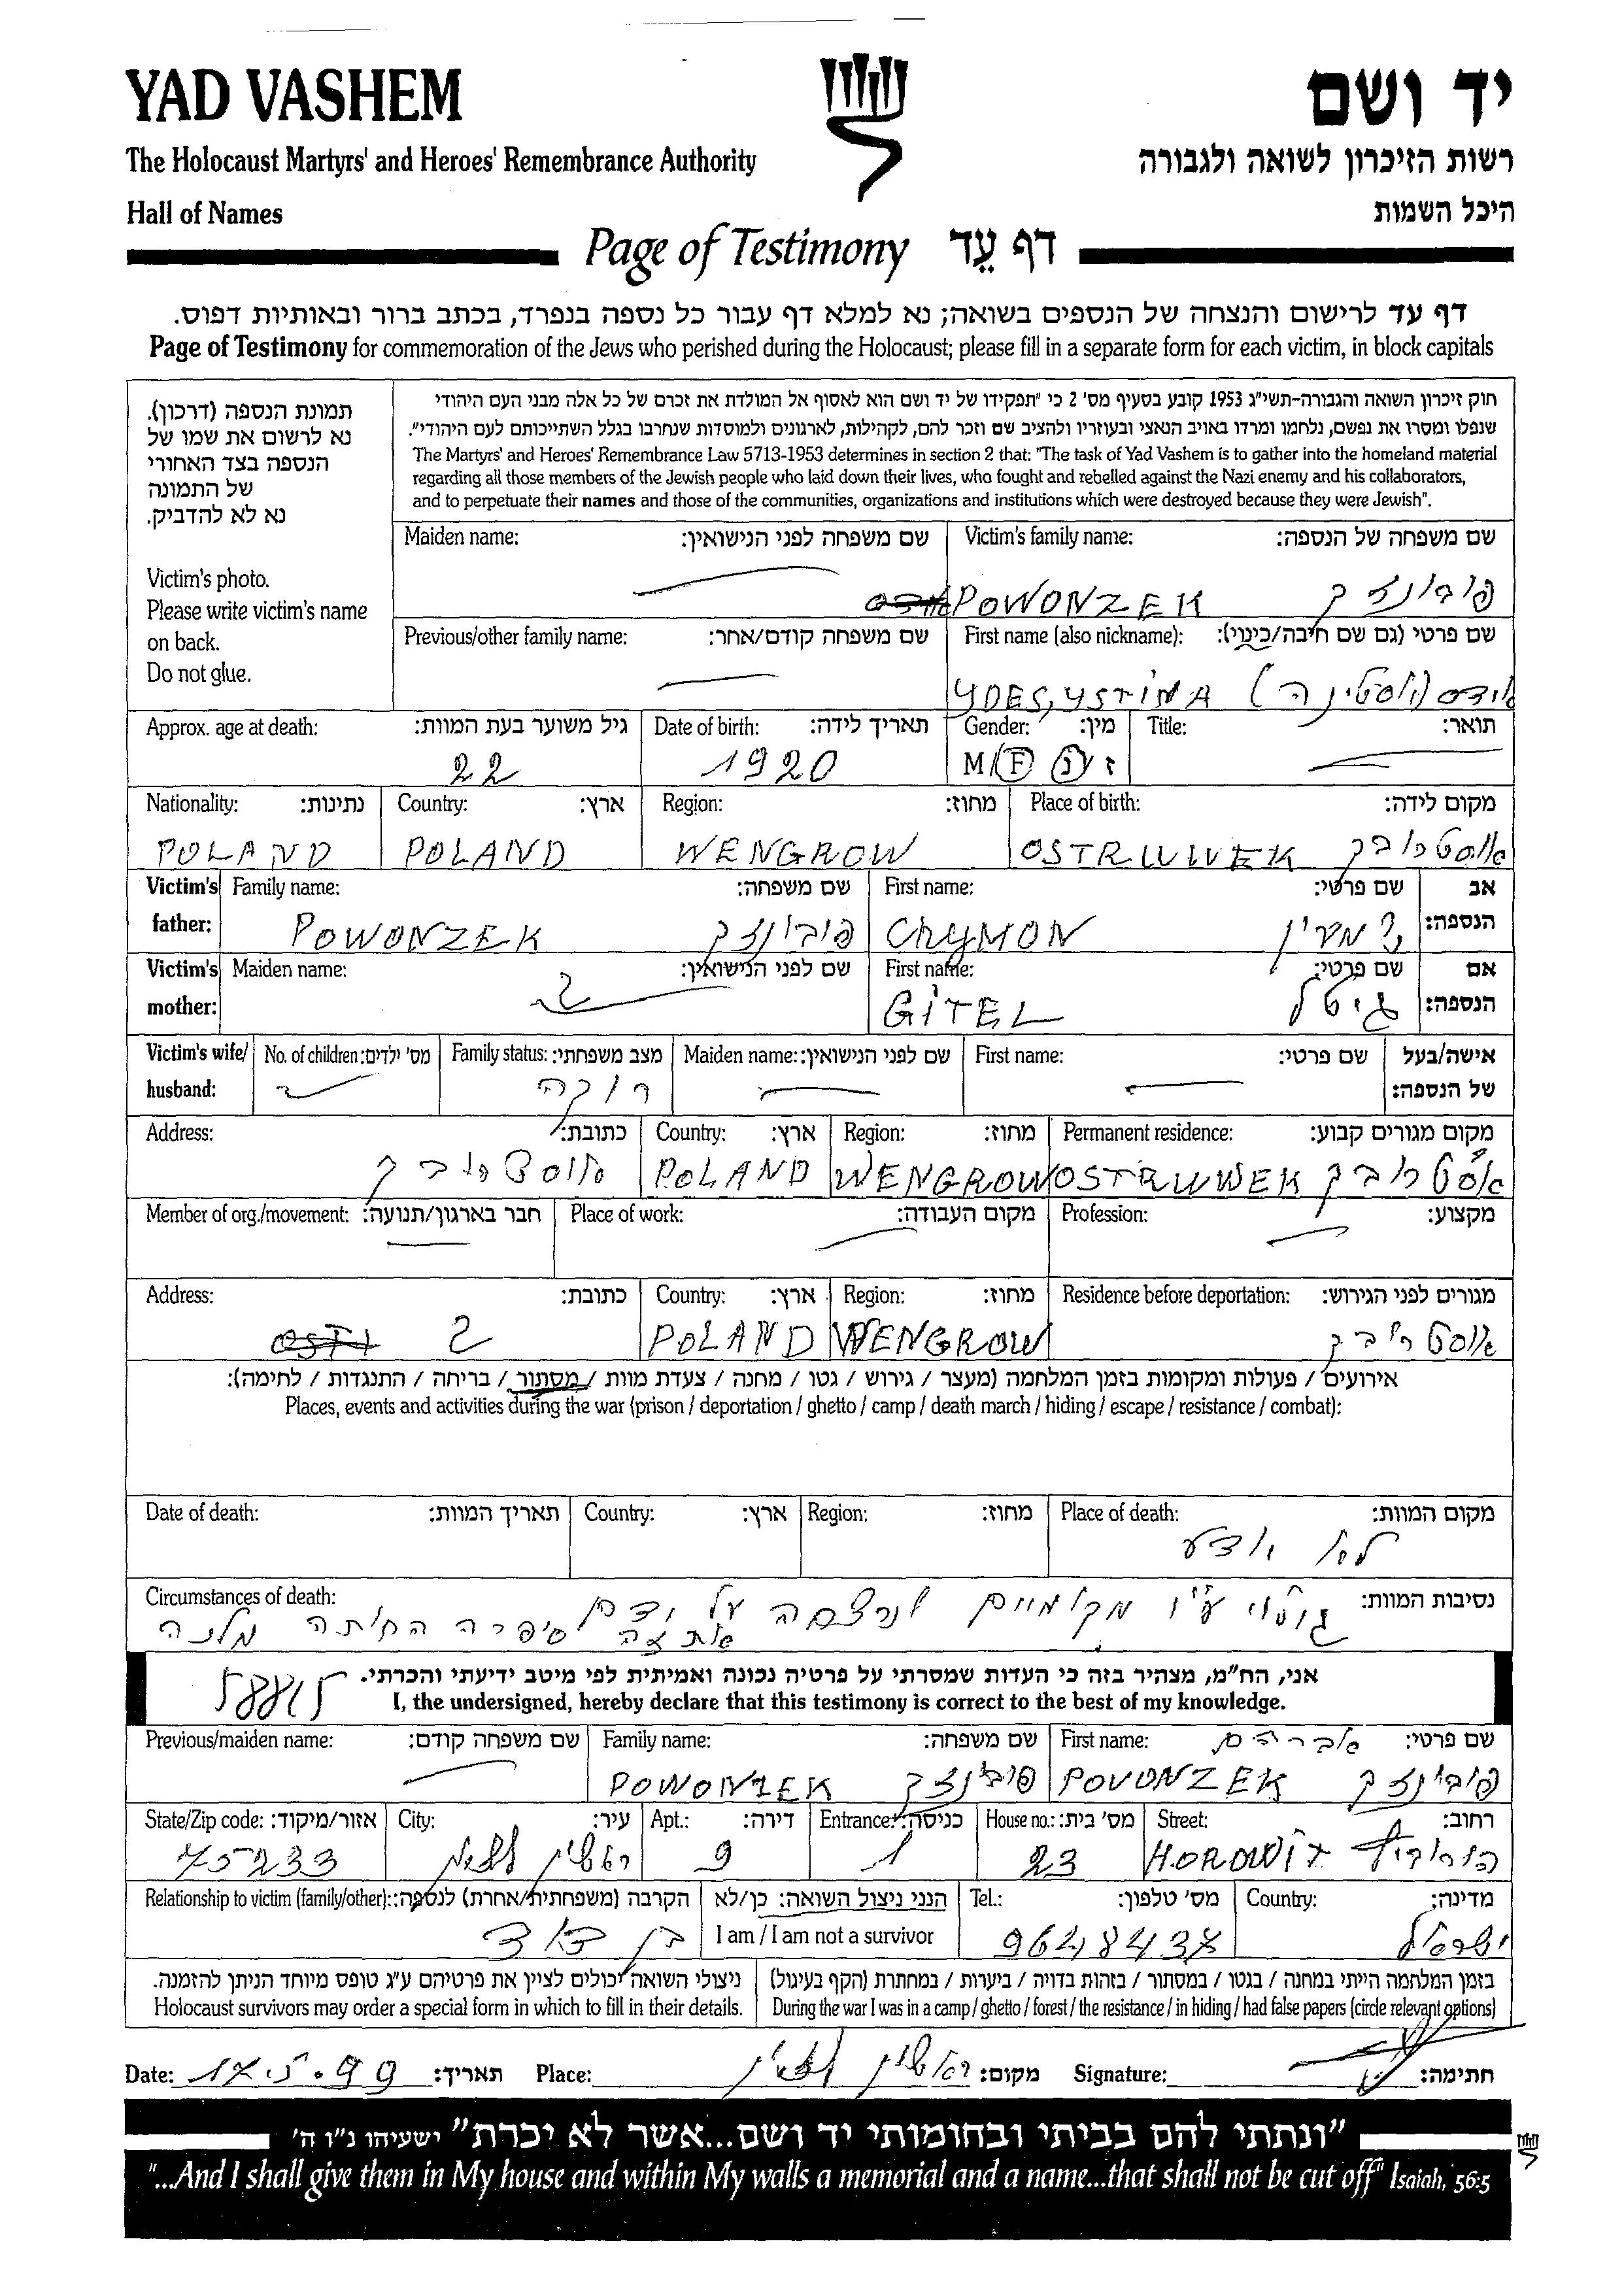 YAD VASHEM
יד ושם
The Holocaust Martyrs' and Heroes' Remembrance Authority
רשות הזיכרון לשואה ולגבורה
Hall of Names
היכל השמות
Page of Testimony דף עֵד
דף עד לרישום והנצחה של הנספים בשואה; נא למלא דף עבור כל נספה בנפרד, בכתב ברור ובאותיות דפוס.
Page of Testimony for commemoration of the Jews who perished during the Holocaust; please fill in a separate form for each victim, in block capitals
תמונת הנספה (דרכון).
נא לרשום את שמו של
הנספה בצד האחורי
של התמונה
נא לא להדביק.
Victim's photo.
Please write victim's name
on back.
Do not glue.
חוק זיכרון השואה והגבורה-תשי"ג 1953 קובע בסעיף מס' 2 כי "תפקידו של יד ושם הוא לאסוף אל המולדת את זכרם של כל אלה מבני העם היהודי
שנפלו ומסרו את נפשם, נלחמו ומרדו באויב הנאצי ובעוזריו ולהציב שם וזכר להם, לקהילות, לארגונים ולמוסדות שנחרבו בגלל השתייכותם לעם היהודי".
The Martyrs' and Heroes' Remembrance Law 5713-1953 determines in section 2 that: "The task of Yad Vashem is to gather into the homeland material
regarding all those members of the Jewish people who laid down their lives, who fought and rebelled against the Nazi enemy and his collaborators,
and to perpetuate their names and those of the communities, organizations and institutions which were destroyed because they were Jewish".
Maiden name: שם משפחה לפני הנישואין: Victim's family name: שם משפחה של הנספה:
POWONZEK פובונזק
Previous/other family name: שם משפחה קודם/אחר: First name (also nickname): שם פרטי (גם שם חיבה/כינוי):
YDES, YSTINA (יוסטינה)
Approx. age at death: גיל משוער בעת המוות: Date of birth: תאריך לידה: Gender: מין: Title: תואר:
22 1920 M/F ז/נ
Nationality: נתינות: Country: ארץ: Region: מחוז: Place of birth: מקום לידה:
POLAND POLAND WENGROW OSTRUWEK אוסטרובק
Victim's father: Family name: שם משפחה: First name: שם פרטי: אב הנספה:
POWONZEK פובונזק CHYMON
Victim's mother: Maiden name: שם לפני הנישואין: First name: שם פרטי: אם הנספה:
GITEL גיטל
Victim's wife/ husband: No. of children: מס' ילדים: Family status: מצב משפחתי: Maiden name: שם לפני הנישואין: First name: שם פרטי: אישה/בעל של הנספה:
רווקה
Address: כתובת: Country: ארץ: Region: מחוז: Permanent residence: מקום מגורים קבוע:
אוסטרובק POLAND WENGROW OSTRUWEK אוסטרובק
Member of org./movement: חבר בארגון/תנועה: Place of work: מקום העבודה: Profession: מקצוע:
Address: כתובת: Country: ארץ: Region: מחוז: Residence before deportation: מגורים לפני הגירוש:
? POLAND WENGROW אוסטרובק
אירועים / פעולות ומקומות בזמן המלחמה (מעצר / גירוש / גטו / מחנה / צעדת מוות / מסתור / בריחה / התנגדות / לחימה):
Places, events and activities during the war (prison / deportation / ghetto / camp / death march / hiding / escape / resistance / combat):
Date of death: תאריך המוות: Country: ארץ: Region: מחוז: Place of death: מקום המוות:
לא יודע
Circumstances of death: נסיבות המוות:
ע"י מקומיים ונרצחה על ידם
את זה סיפרה
אני, הח"מ, מצהיר בזה כי העדות שמסרתי על פרטיה נכונה ואמיתית לפי מיטב ידיעתי והכרתי.
I, the undersigned, hereby declare that this testimony is correct to the best of my knowledge.
Previous/maiden name: שם משפחה קודם: Family name: שם משפחה: First name: שם פרטי:
אברהם
POWONZEK פובונזק POVONZEK פובונזק
State/Zip code: אזור/מיקוד: City: עיר: Apt.: דירה: Entrance: כניסה: House no.: מס' בית: Street: רחוב:
75233 ראשון לציון 9 1 23 HOROWIT הורוביץ
Relationship to victim (family/other): הקרבה (משפחתית/אחרת) לנספה: הנני ניצול השואה: כן/לא Tel.: מס' טלפון: Country: מדינה:
I am / I am not a survivor
בן דוד 9648438 ישראל
ניצולי השואה יכולים לציין את פרטיהם ע"ג טופס מיוחד הניתן להזמנה. בזמן המלחמה הייתי במחנה / בגטו / במסתור / בזהות בדויה / ביערות / במחתרת (הקף בעיגול)
Holocaust survivors may order a special form in which to fill in their details. During the war I was in a camp / ghetto / forest / the resistance / in hiding / had false papers (circle relevant options)
Date: 17.5.99 תאריך: Place: ראשון לציון מקום: Signature: חתימה:
"ונתתי להם בביתי ובחומותי יד ושם...אשר לא יכרת" ישעיהו נ"ו ה'
"...And I shall give them in My house and within My walls a memorial and a name...that shall not be cut off" Isaiah, 56:5